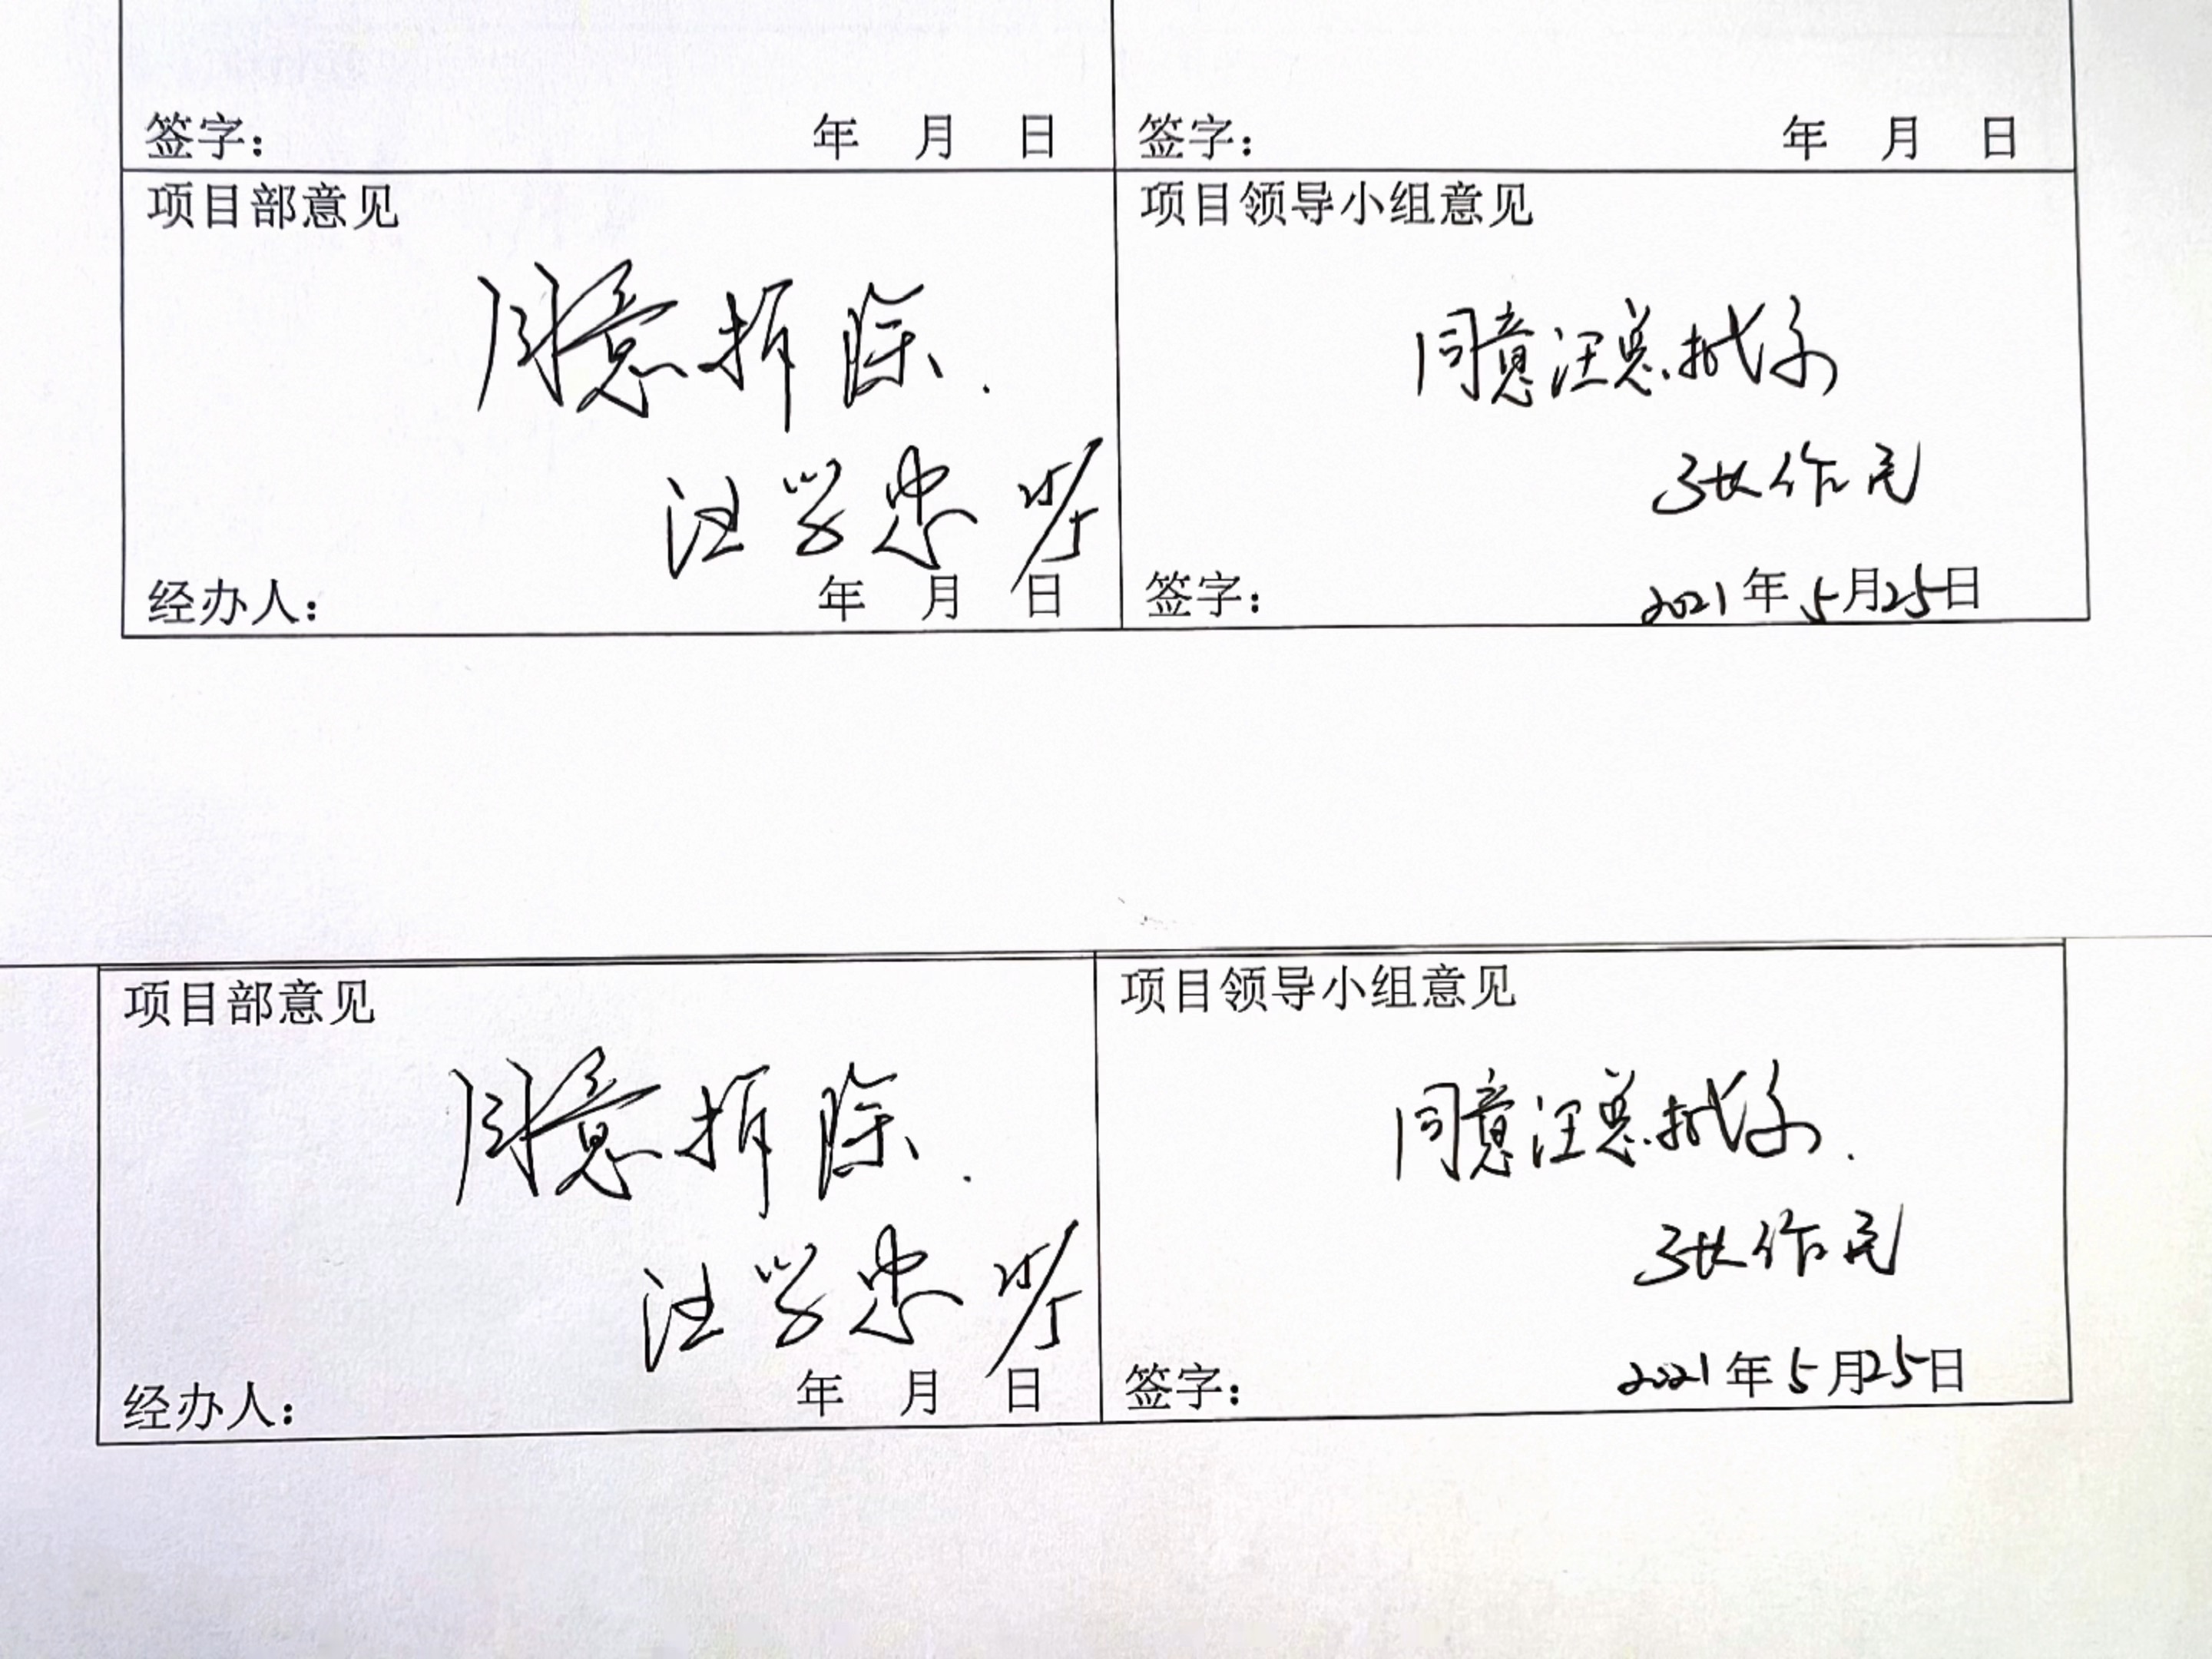 签字： 年 月 日
签字： 年 月 日
项目部意见
同意拆除.
汪学忠 25/5
经办人： 年 月 日
项目领导小组意见
同意汪总拟子
张作民
签字： 2021年5月25日
项目部意见
同意拆除.
汪学忠 25/5
经办人： 年 月 日
项目领导小组意见
同意汪总.
张作民
签字： 2021年5月25日